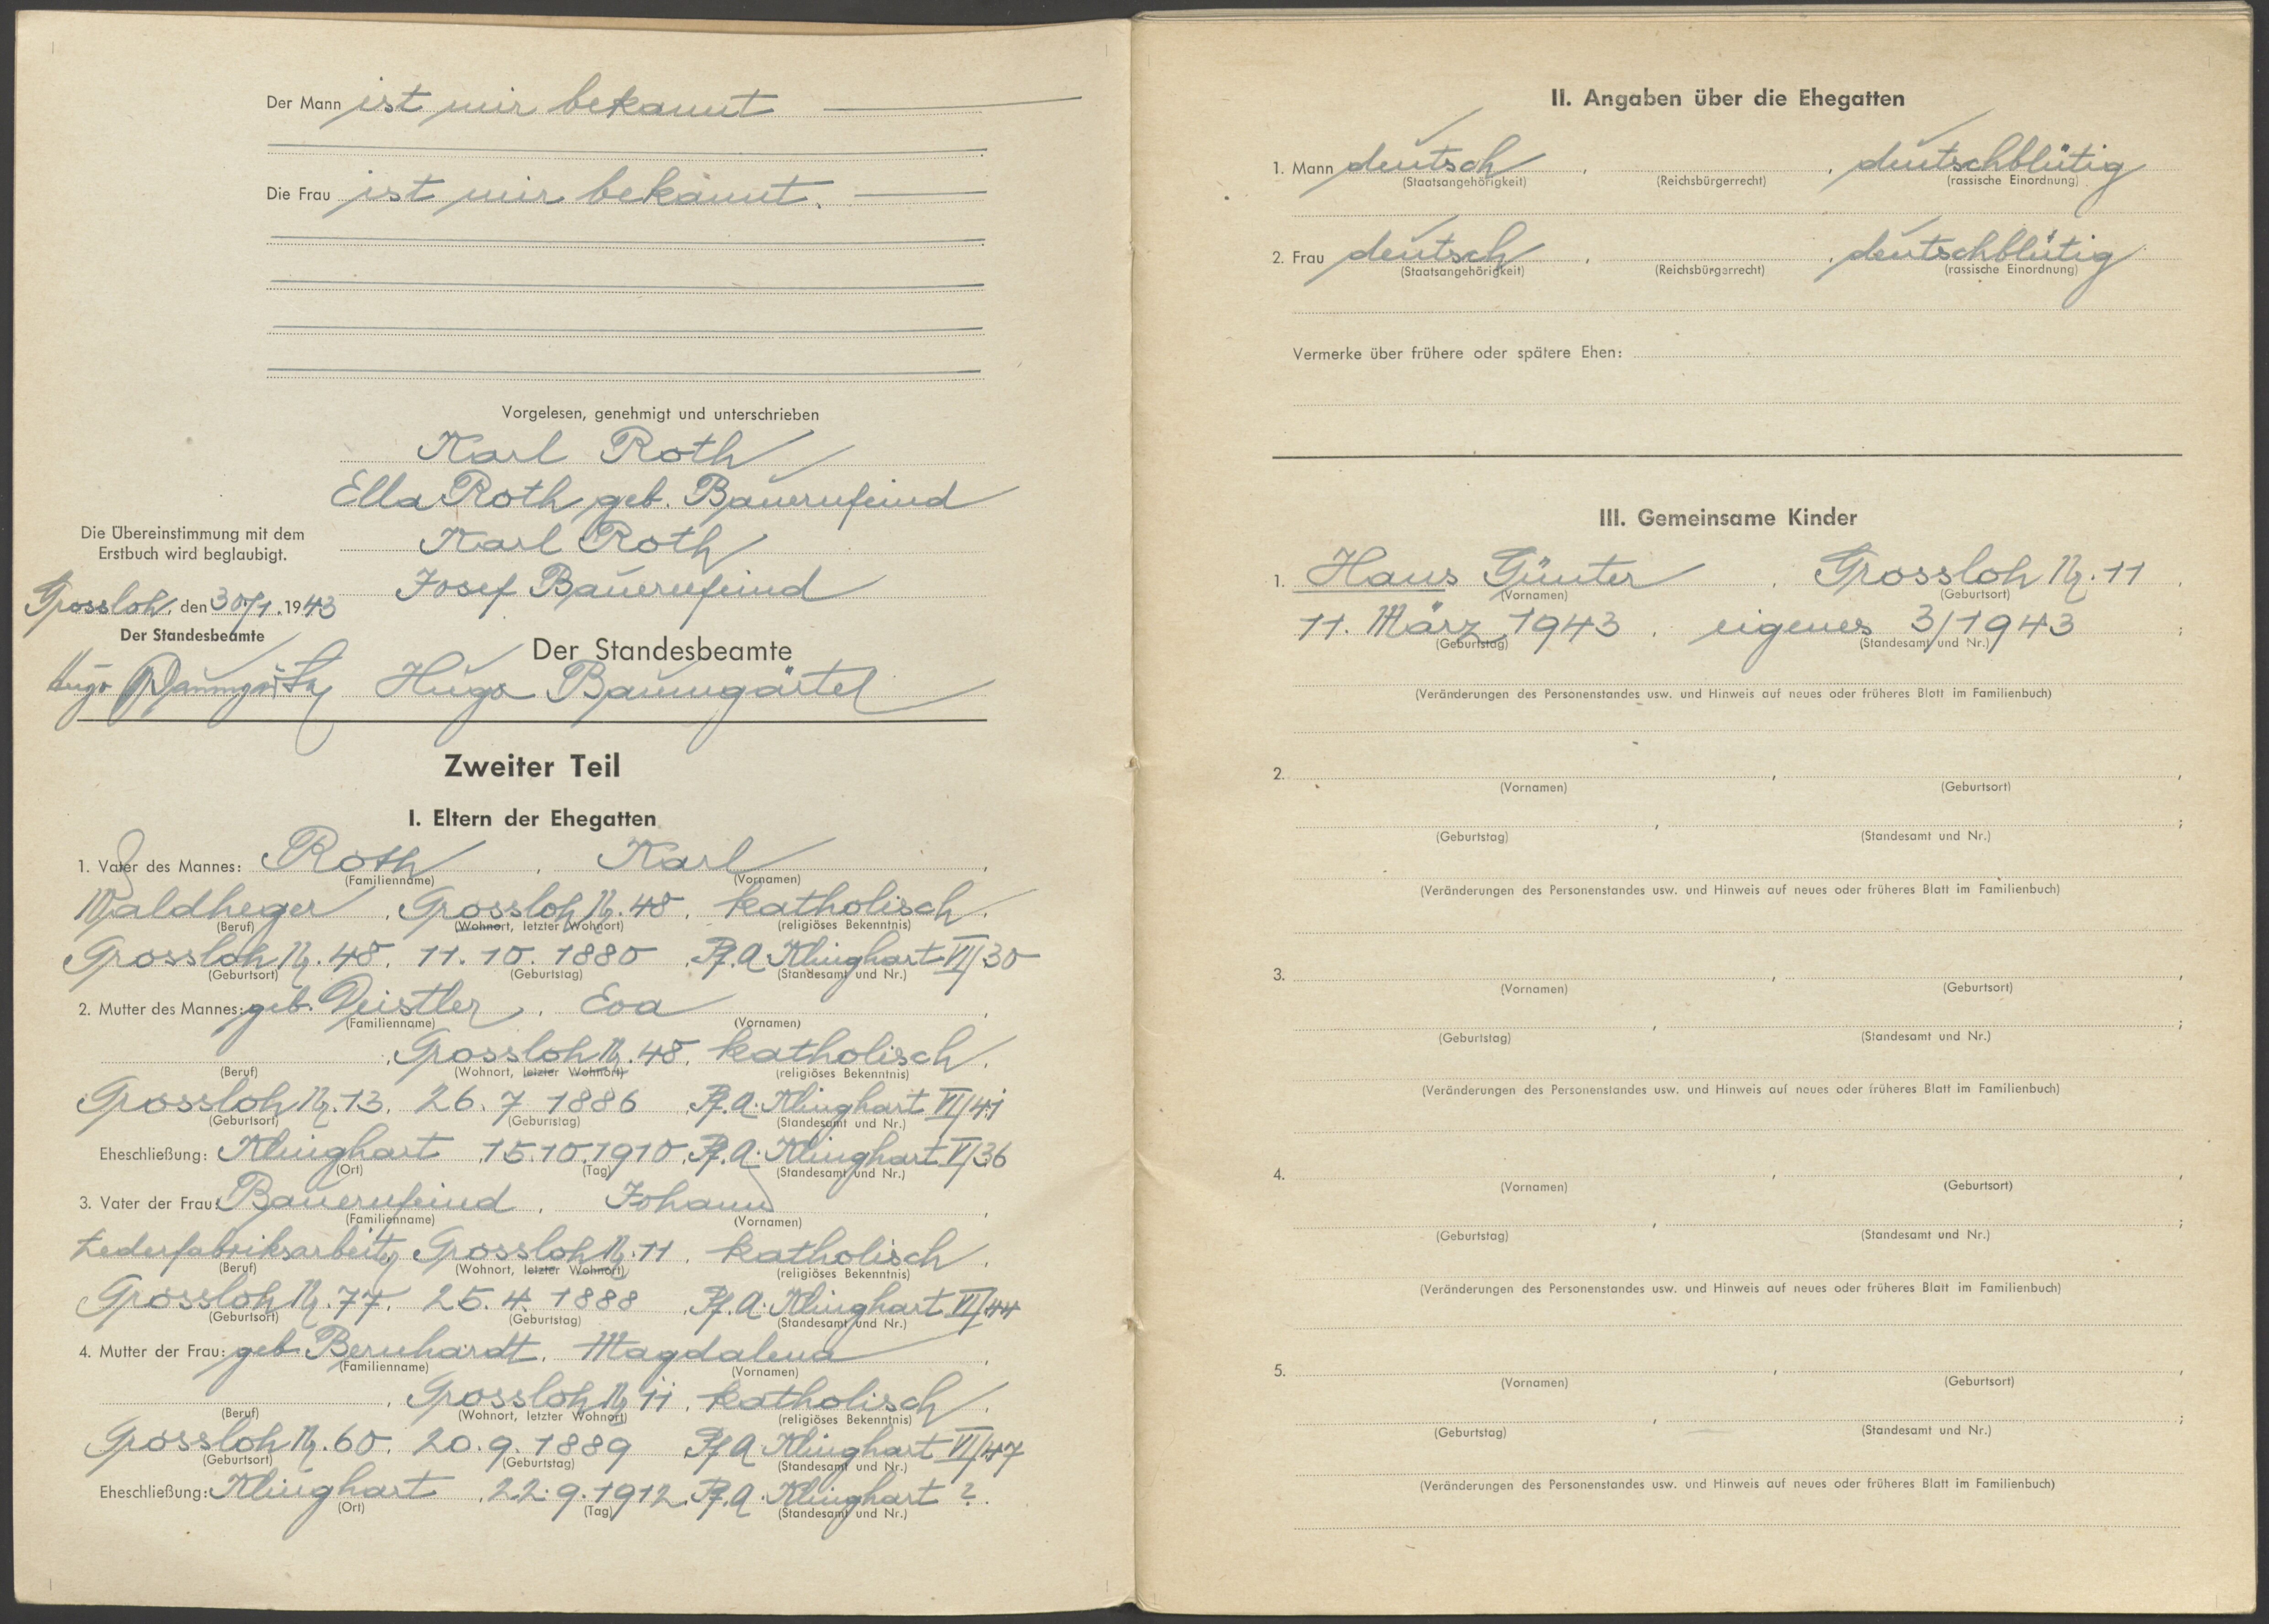 Der Mann ist mir bekannt
Die Frau ist mir bekannt.
Vorgelesen, genehmigt und unterschrieben
Karl Roth
Ella Roth geb. Bauernfeind
Karl Roth
Josef Bauernfeind
Die Übereinstimmung mit dem
Erstbuch wird beglaubigt.
Grossloh, den 30/1.1943
Der Standesbeamte
Der Standesbeamte
Hugo Baumgärtel Hugo Baumgärtel
Zweiter Teil
I. Eltern der Ehegatten
1. Vater des Mannes: Roth, Karl,
(Familienname) (Vornamen)
Waldheger, Grossloh Nr. 48, katholisch,
(Beruf) (Wohnort, letzter Wohnort) (religiöses Bekenntnis)
Grossloh Nr. 48, 11. 10. 1880, Pf. A. Klinghart VI/30
(Geburtsort) (Geburtstag) (Standesamt und Nr.)
2. Mutter des Mannes: geb. Deistler, Eva,
(Familienname) (Vornamen)
, Grossloh Nr. 48, katholisch,
(Beruf) (Wohnort, letzter Wohnort) (religiöses Bekenntnis)
Grossloh Nr. 13, 26. 7. 1886 Pf. A. Klinghart VI/41
(Geburtsort) (Geburtstag) (Standesamt und Nr.)
Eheschließung: Klinghart, 15.10.1910, Pf. A. Klinghart V/36
(Ort) (Tag) (Standesamt und Nr.)
3. Vater der Frau: Bauernfeind, Johann,
(Familienname) (Vornamen)
Lederfabriksarbeiter, Grossloh Nr. 11, katholisch,
(Beruf) (Wohnort, letzter Wohnort) (religiöses Bekenntnis)
Grossloh Nr. 77, 25. 4. 1888, Pf. A. Klinghart VI/44
(Geburtsort) (Geburtstag) (Standesamt und Nr.)
4. Mutter der Frau: geb. Bernhardt, Magdalena,
(Familienname) (Vornamen)
, Grossloh Nr. 11, katholisch,
(Beruf) (Wohnort, letzter Wohnort) (religiöses Bekenntnis)
Grossloh Nr. 60, 20. 9. 1889 Pf. A. Klinghart VI/47
(Geburtsort) (Geburtstag) (Standesamt und Nr.)
Eheschließung: Klinghart, 22. 9. 1912, Pf. A. Klinghart ?
(Ort) (Tag) (Standesamt und Nr.)
II. Angaben über die Ehegatten
1. Mann deutsch, , deutschblütig
(Staatsangehörigkeit) (Reichsbürgerrecht) (rassische Einordnung)
2. Frau deutsch, , deutschblütig
(Staatsangehörigkeit) (Reichsbürgerrecht) (rassische Einordnung)
Vermerke über frühere oder spätere Ehen:
III. Gemeinsame Kinder
1. Hans Günter, Grossloh Nr. 11,
(Vornamen) (Geburtsort)
11. März 1943, eigenes 3/1943;
(Geburtstag) (Standesamt und Nr.)
(Veränderungen des Personenstandes usw. und Hinweis auf neues oder früheres Blatt im Familienbuch)
2. , ,
(Vornamen) (Geburtsort)
, ;
(Geburtstag) (Standesamt und Nr.)
(Veränderungen des Personenstandes usw. und Hinweis auf neues oder früheres Blatt im Familienbuch)
3. , ,
(Vornamen) (Geburtsort)
, ;
(Geburtstag) (Standesamt und Nr.)
(Veränderungen des Personenstandes usw. und Hinweis auf neues oder früheres Blatt im Familienbuch)
4. , ,
(Vornamen) (Geburtsort)
, ;
(Geburtstag) (Standesamt und Nr.)
(Veränderungen des Personenstandes usw. und Hinweis auf neues oder früheres Blatt im Familienbuch)
5. , ,
(Vornamen) (Geburtsort)
, ;
(Geburtstag) (Standesamt und Nr.)
(Veränderungen des Personenstandes usw. und Hinweis auf neues oder früheres Blatt im Familienbuch)